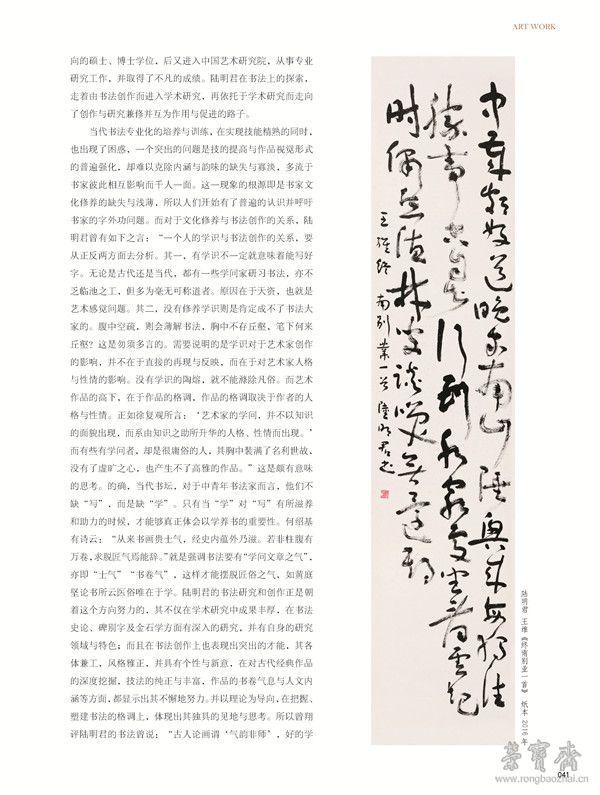 ART WORK
向的硕士、博士学位，后又进入中国艺术研究院，从事专业
研究工作，并取得了不凡的成绩。陆明君在书法上的探索，
走着由书法创作而进入学术研究，再依托于学术研究而走向
了创作与研究兼修并互为作用与促进的路子。
当代书法专业化的培养与训练，在实现技能精熟的同时，
也出现了困惑，一个突出的问题是技的提高与作品视觉形式
的普遍强化，却难以克除内涵与韵味的缺失与寡淡，多流于
书家彼此相互影响而千人一面。这一现象的根源即是书家文
化修养的缺失与浅薄，所以人们开始有了普遍的认识并呼吁
书家的字外功问题。而对于文化修养与书法创作的关系，陆
明君曾有如下之言：“一个人的学识与书法创作的关系，要
从正反两方面去分析。其一，有学识不一定就意味着能写好
字。无论是古代还是当代，都有一些学问家研习书法，亦不
乏临池之工，但多为毫无可称道者。原因在于天资，也就是
艺术感觉问题。其二，没有修养学识则是肯定成不了书法大
家的。腹中空疏，则会薄解书法，胸中不存丘壑，笔下何来
丘壑？这是勿须多言的。需要说明的是学识对于艺术家创作
的影响，并不在于直接的再现与反映，而在于对艺术家人格
与性情的影响。没有学识的陶熔，就不能涤除凡俗。而艺术
作品的高下，在于作品的格调，作品的格调取决于作者的人
格与性情。正如徐复观所言：‘艺术家的学问，并不以知识
的面貌出现，而系由知识之助所升华的人格、性情而出现。’
而有些有学问者，却是很庸俗的人，其胸中装满了名利世故，
没有了虚旷之心，也产生不了高雅的作品。”这是颇有意味
的思考。的确，当代书坛，对于中青年书法家而言，他们不
缺“写”，而是缺“学”。只有当“学”对“写”有所滋养
和助力的时候，才能够真正体会以学养书的重要性。何绍基
有诗云：“从来书画贵士气，经史内蕴外乃滋。若非柱腹有
万卷，求脱匠气焉能辞。”就是强调书法要有“学问文章之气”，
亦即“士气”“书卷气”，这样才能摆脱匠俗之气，如黄庭
坚论书所云医俗唯在于学。陆明君的书法研究和创作正是朝
着这个方向努力的，其不仅在学术研究中成果丰厚，在书法
史论、碑别字及金石学方面有深入的研究，并有自身的研究
领域与特色；而且在书法创作上也表现出突出的才能，其各
体兼工，风格雅正，并具有个性与新意，在对古代经典作品
的深度挖掘，技法的纯正与丰富，作品的书卷气息与人文内
涵等方面，都显示出其不懈地努力。并以理论为导向，在把握、
塑建书法的格调上，体现出其独具的见地与思考。所以曾翔
评陆明君的书法曾说：“古人论画谓‘气韵非师’，好的学
中岁颇好道晚家南山陲兴来每独往
胜事空自知行到水穷处坐看云起
时偶然值林叟谈笑无还期
王维终南别业一首 陆明君书
陆明君 王维《终南别业一首》 纸本 2016年
荣宝斋
www.rongbaozhai.cn
041